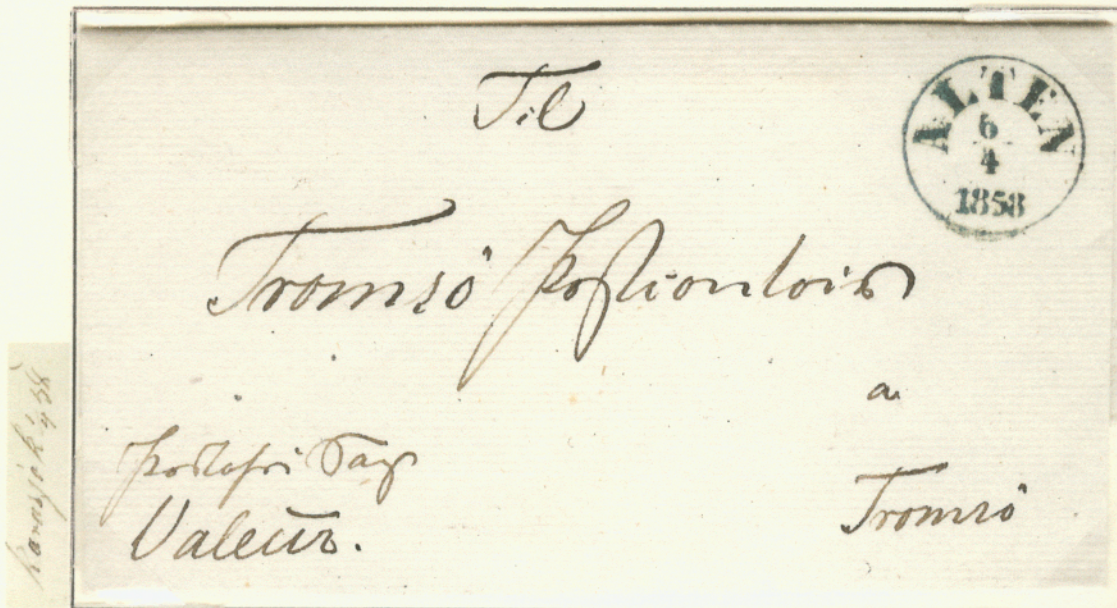 Til
ALTEN
6
4
1858
Tromsö Postcontoir
a
Tromsö
Portofri Sag
Valeur.
Karasjok